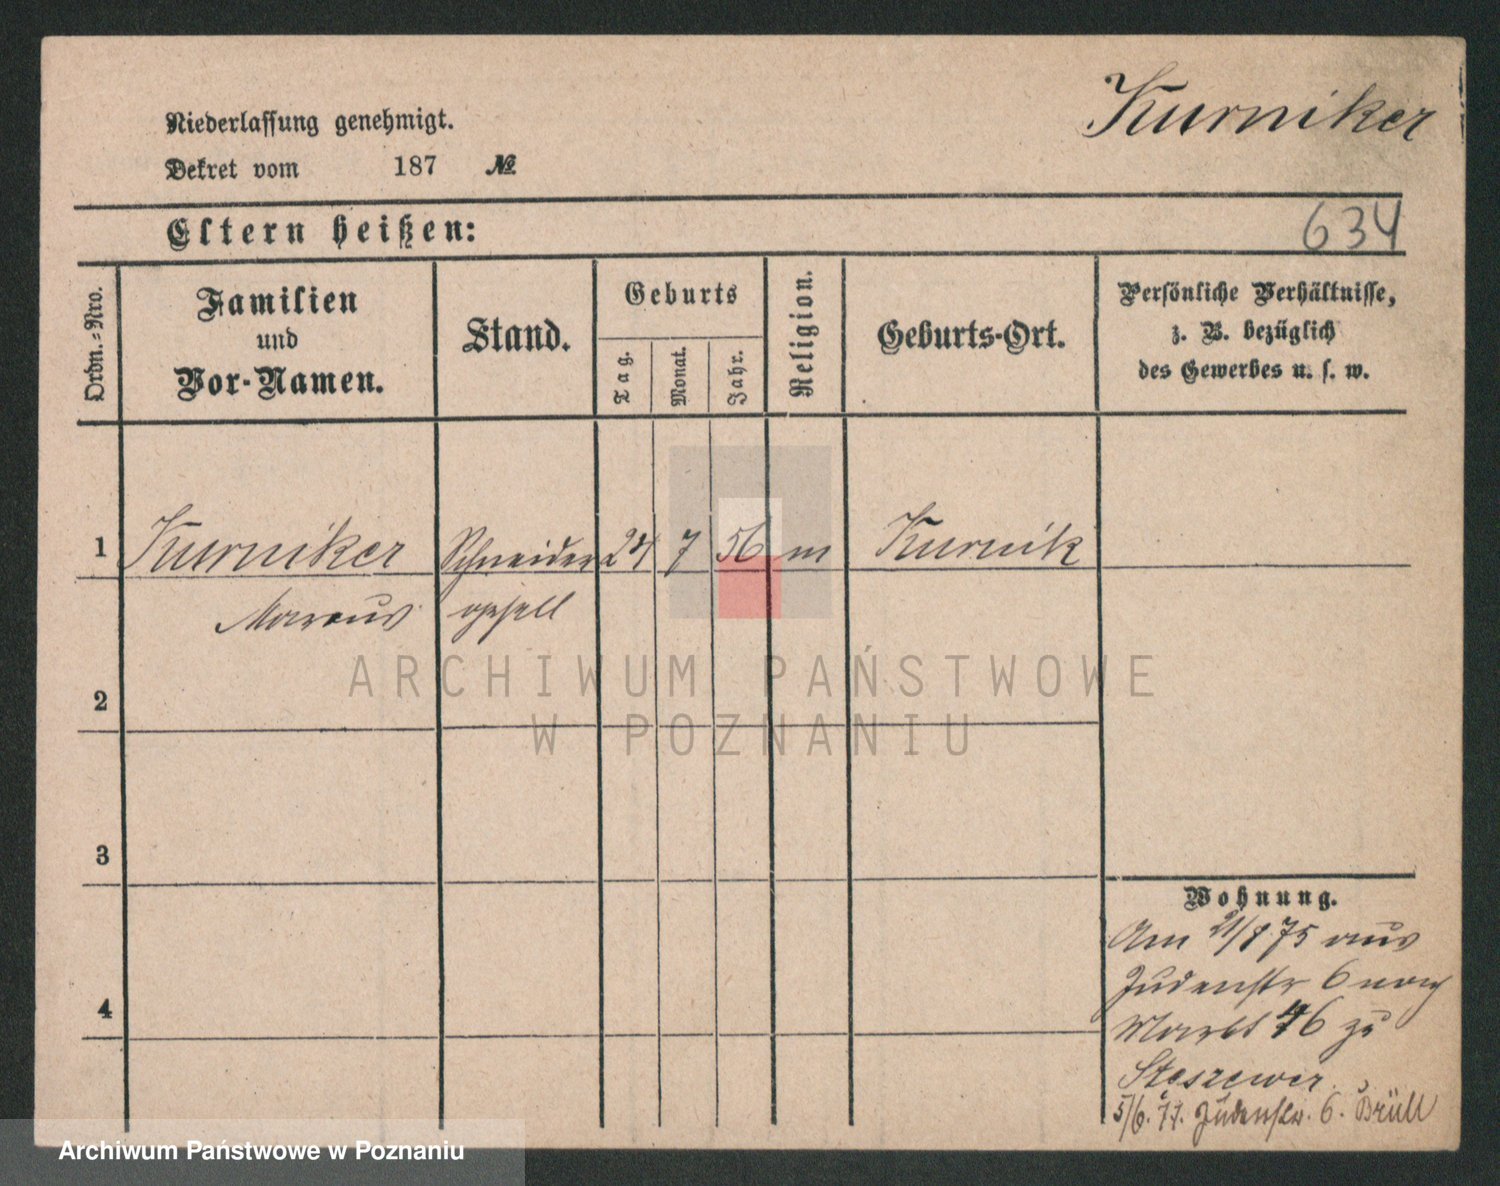 Kurniker
Niederlassung genehmigt.
Dekret vom 187 №
Eltern heißen:
634
Ordn.-Nro.
Familien
und
Vor-Namen.
Stand.
Geburts
Tag.
Monat.
Jahr.
Religion.
Geburts-Ort.
Persönliche Verhältnisse,
z. B. bezüglich
des Gewerbes u. s. w.
1 Kurniker Schneider 24 7 56 m Kurnik
Marcus gesell
ARCHIWUM PAŃSTWOWE
W POZNANIU
2
3
4
Wohnung.
Am 21/8 75 aus
Judenstr 6 nach
Markt 46 zu
Steszewer.
5/6. 77. Judenstr. 6. Brüll
Archiwum Państwowe w Poznaniu